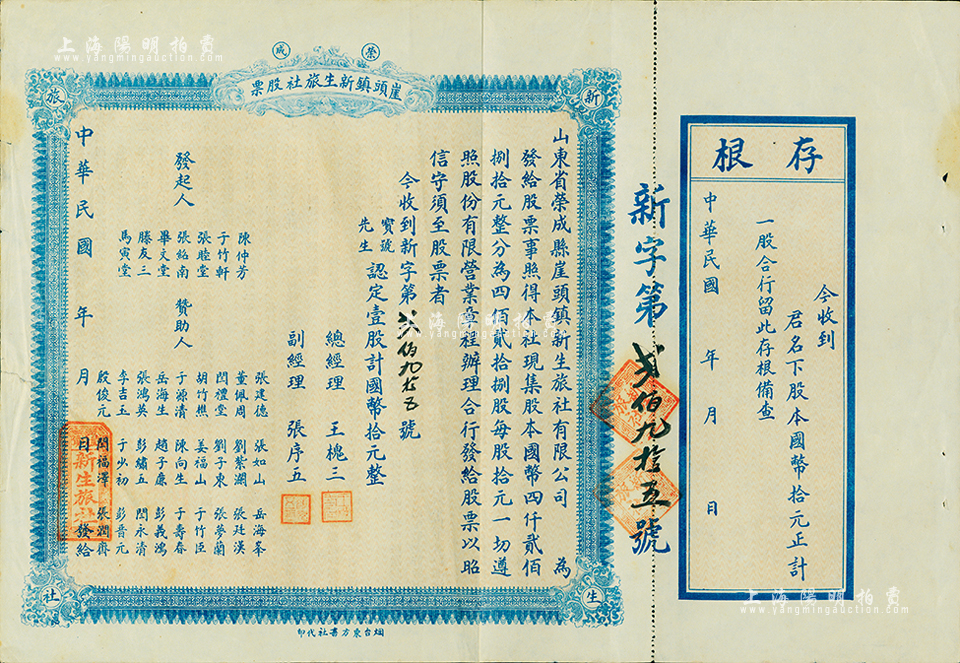 上海陽明拍賣
www.yangmingauction.com
榮成
崖頭鎮新生旅社股票
新
生
旅
社
山東省榮成縣崖頭鎮新生旅社有限公司 為
發給股票事照得本社現集股本國幣四仟貳佰
捌拾元整分為四佰貳拾捌股每股拾元一切遵
照股份有限營業章程辦理合行發給股票以昭
信守須至股票者
今收到新字第貳佰九拾五號
寶號
先生 認定壹股計國幣拾元整
總經理 王槐三
副經理 張序五
發起人
陳仲芳
于竹軒
張睦堂
張紹南
畢文堂
滕友三
馬寅堂
贊助人
張建德 張如山 岳海峯
董佩周 劉紫瀾 張廷漢
閆禮堂 劉子東 張夢蘭
胡竹樵 姜福山 于竹臣
于源清 陳向生 于壽春
岳海生 趙子廉 彭義鴻
張鴻英 彭繡五 閆永清
李吉玉 于少初 彭晉元
殷俊元 閆福澤 張潤齋
中華民國 年 月 日發給
新生旅社
烟台東方書社代印
新字第貳佰九拾五號
存根
今收到
君名下股本國幣拾元正計
一股合行留此存根備查
中華民國 年 月 日
上海陽明拍賣
www.yangmingauction.com
上海陽明拍賣
www.yangmingauction.com